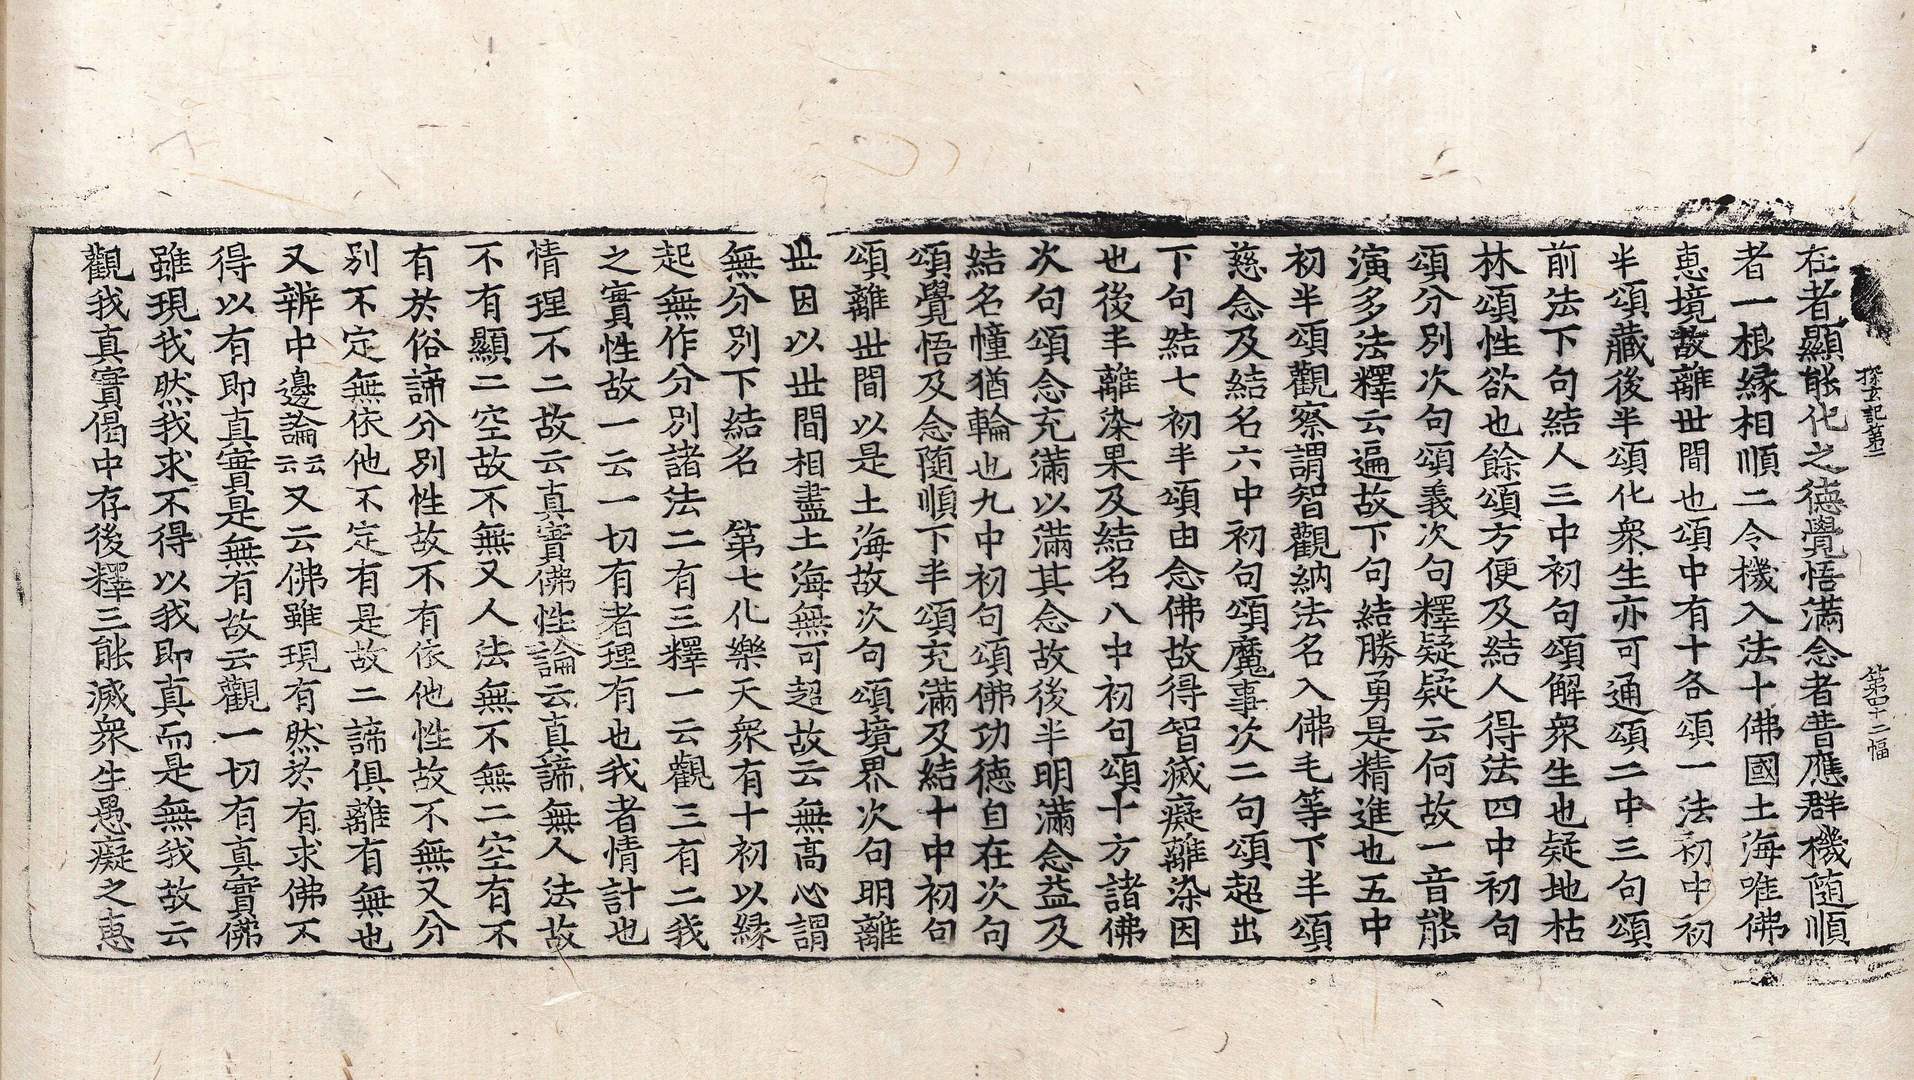 探玄記第二　第四十二幅
在者顯能化之德覺悟滿念者普應群機随順
者一根縁相順二令機入法十佛國土海唯佛
恵境故離世間也頌中有十各頌一法初中初
半頌藏後半頌化衆生亦可通頌二中三句頌
前法下句結人三中初句頌解衆生也疑地枯
林頌性欲也餘頌方便及結人得法四中初句
頌分別次句頌義次句釋疑疑云何故一音能
演多法釋云遍故下句結勝勇是精進也五中
初半頌觀察謂智觀納法名入佛毛等下半頌
慈念及結名六中初句頌魔事次二句頌超出
下句結七初半頌由念佛故得智滅癡離染因
也後半離染果及結名八中初句頌十方諸佛
次句頌念充滿以滿其念故後半明滿念益及
結名幢猶輪也九中初句頌佛功德自在次句
頌覺悟及念随順下半頌充滿及結十中初句
頌離世間以是土海故次句頌境界次句明離
世因以世間相盡土海無可超故云無高心謂
無分別下結名　第七化樂天衆有十初以縁
起無作分別諸法二有三釋一云觀三有二我
之實性故一云一切有者理有也我者情計也
情理不二故云真實佛性論云真諦無人法故
不有顯二空故不無又人法無不無二空有不
有於俗諦分別性故不有依他性故不無又分
別不定無依他不定有是故二諦俱離有無也
又辨中邊論云云又云佛雖現有然於有求佛不
得以有即真實是無有故云觀一切有真實佛
雖現我然我求不得以我即真而是無我故云
觀我真實偈中存後釋三能滅衆生愚癡之恵